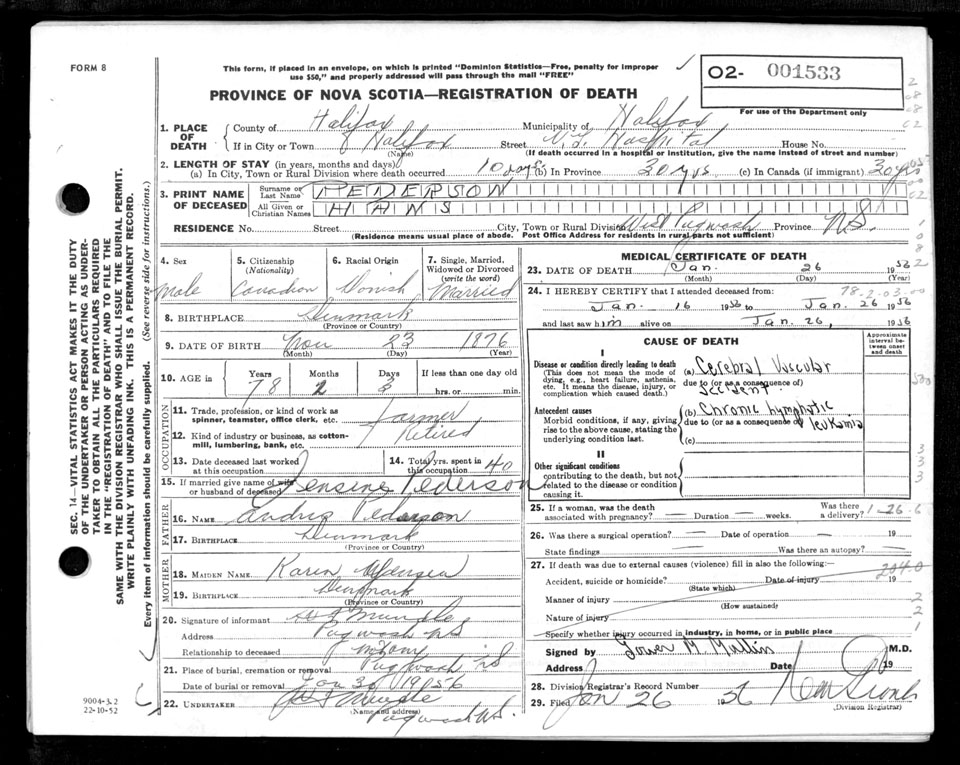 FORM 8
This form, if placed in an envelope, on which is printed "Dominion Statistics—Free, penalty for improper
use $50," and properly addressed will pass through the mail "FREE"
02- 001533
For use of the Department only
PROVINCE OF NOVA SCOTIA—REGISTRATION OF DEATH
1. PLACE OF DEATH
County of Halifax Municipality of Halifax
If in City or Town Halifax Street V.G. Hospital House No.
(Name) (If death occurred in a hospital or institution, give the name instead of street and number)
2. LENGTH OF STAY (in years, months and days)
(a) In City, Town or Rural Division where death occurred 10 days (b) In Province 30 yrs (c) In Canada (if immigrant) 30 yrs
3. PRINT NAME OF DECEASED
Surname or Last Name PEDERSON
All Given or Christian Names HANS
RESIDENCE No. Street City, Town or Rural Division West Pugwash Province N.S.
(Residence means usual place of abode. Post Office Address for residents in rural parts not sufficient)
4. Sex Male
5. Citizenship (Nationality) Canadian
6. Racial Origin Danish
7. Single, Married, Widowed or Divorced (write the word) Married
8. BIRTHPLACE Denmark
(Province or Country)
9. DATE OF BIRTH Nov 23 1876
(Month) (Day) (Year)
10. AGE in Years Months Days If less than one day old
78 2 3 hrs. or min.
OCCUPATION
11. Trade, profession, or kind of work as spinner, teamster, office clerk, etc. Farmer
12. Kind of industry or business, as cotton-mill, lumbering, bank, etc. Retired
13. Date deceased last worked at this occupation
14. Total yrs. spent in this occupation 40
15. If married give name of wife or husband of deceased Jensine Pederson
FATHER
16. NAME Andris Pederson
17. BIRTHPLACE Denmark
(Province or Country)
MOTHER
18. MAIDEN NAME Karen
19. BIRTHPLACE Denmark
(Province or Country)
20. Signature of informant Mundle
Address Pugwash NS
Relationship to deceased
21. Place of burial, cremation or removal Pugwash NS
Date of burial or removal Jan 30 1956
22. UNDERTAKER Mundle
(Name and address) Pugwash N.S.
MEDICAL CERTIFICATE OF DEATH
23. DATE OF DEATH Jan. 26 1956
(Month) (Day) (Year)
24. I HEREBY CERTIFY that I attended deceased from: 78-2-03-00
Jan. 16 1956 to Jan. 26 1956
and last saw him alive on Jan. 26, 1956
CAUSE OF DEATH
Approximate interval between onset and death
I
Disease or condition directly leading to death
(This does not mean the mode of dying, e.g., heart failure, asthenia, etc. It means the disease, injury, or complication which caused death.)
(a) Cerebral Vascular
due to (or as a consequence of)
accident
Antecedent causes
Morbid conditions, if any, giving rise to the above cause, stating the underlying condition last.
(b) Chronic lymphatic
due to (or as a consequence of) leukemia
(c)
II
Other significant conditions
contributing to the death, but not related to the disease or condition causing it.
25. If a woman, was the death associated with pregnancy? — Duration — weeks. Was there a delivery? 1-26-6
26. Was there a surgical operation? — Date of operation — 19
State findings Was there an autopsy? —
27. If death was due to external causes (violence) fill in also the following:— 2040
Accident, suicide or homicide? Date of injury 19
(State which)
Manner of injury
(How sustained)
Nature of injury
Specify whether injury occurred in industry, in home, or in public place
Signed by M. Mullin M.D.
Address Date 19
28. Division Registrar's Record Number
29. Filed Jan 26 1956
(Division Registrar)
SEC. 14—VITAL STATISTICS ACT MAKES IT THE DUTY
OF THE UNDERTAKER OR PERSON ACTING AS UNDER-
TAKER TO OBTAIN ALL THE PARTICULARS REQUIRED
IN THE "REGISTRATION OF DEATH" AND TO FILE THE
SAME WITH THE DIVISION REGISTRAR WHO SHALL ISSUE THE BURIAL PERMIT.
WRITE PLAINLY WITH UNFADING INK. THIS IS A PERMANENT RECORD.
Every item of information should be carefully supplied. (See reverse side for instructions.)
9004-3.2
22-10-52